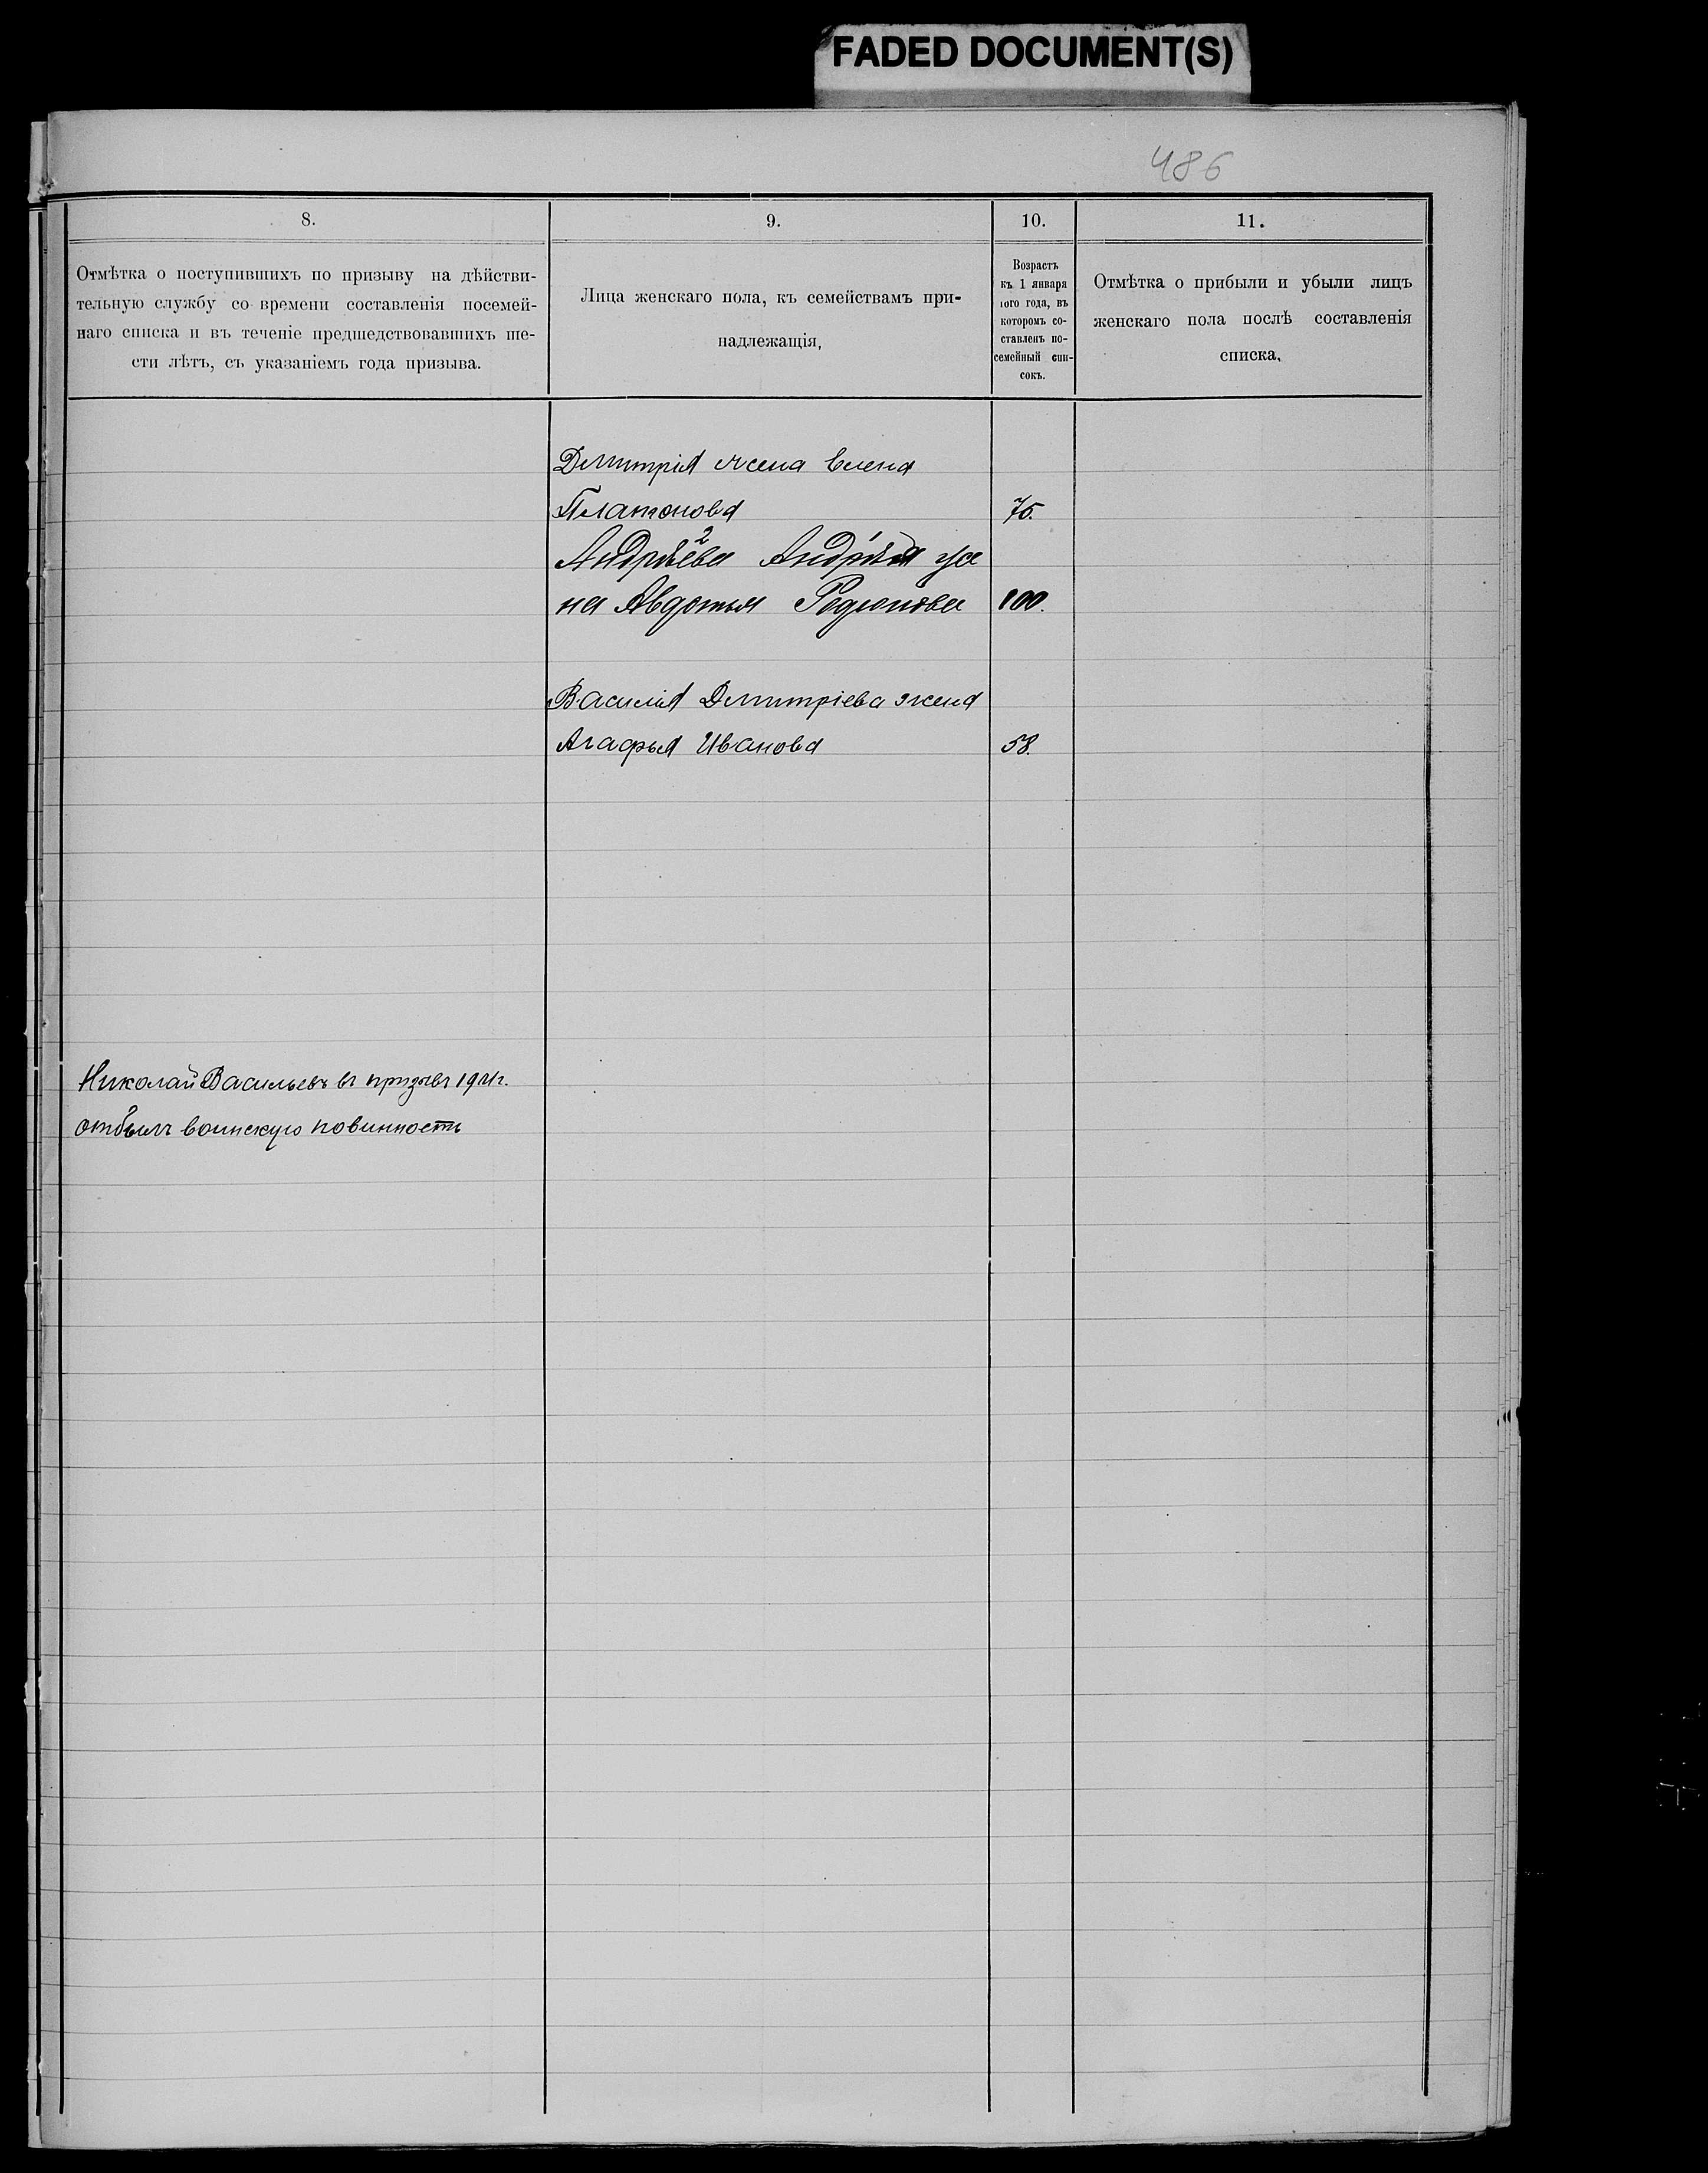 FADED DOCUMENT(S)
486
8.
9.
10.
11.
Отмѣтка о поступившихъ по призыву на дѣйстви-
тельную службу со времени составленія посемей-
наго списка и въ теченіе предшедствовавшихъ ше-
сти лѣтъ, съ указаніемъ года призыва.
Лица женскаго пола, къ семействамъ при-
надлежащія,
Возрастъ
къ 1 января
того года, въ
которомъ со-
ставленъ по-
семейный спи-
сокъ.
Отмѣтка о прибыли и убыли лицъ
женскаго пола послѣ составленія
списка.
Дмитрія жена Елена
Платонова 75.
2
Андрѣева Андрѣя же
на Авдотья Родионова 100.
Василія Дмитріева жена
Агафья Иванова 58.
Николай Васильевъ въ призывъ г.
отбылъ воинскую повинность